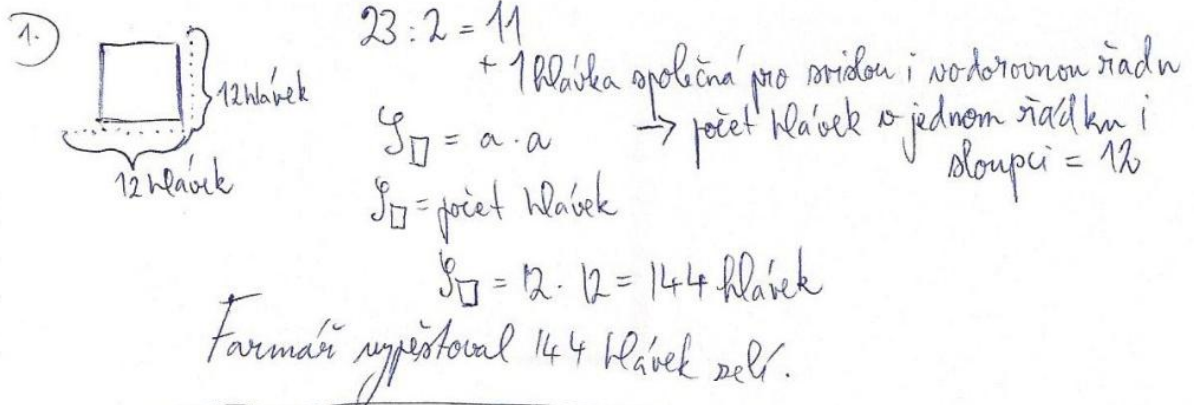 1.
12 hlávek
12 hlávek
23 : 2 = 11
+ 1 hlávka společná pro svislou i vodorovnou řadu
→ počet hlávek v jednom řádku i
sloupci = 12
S□ = a · a
S□ = počet hlávek
S□ = 12 · 12 = 144 hlávek
Farmář vypěstoval 144 hlávek zelí.